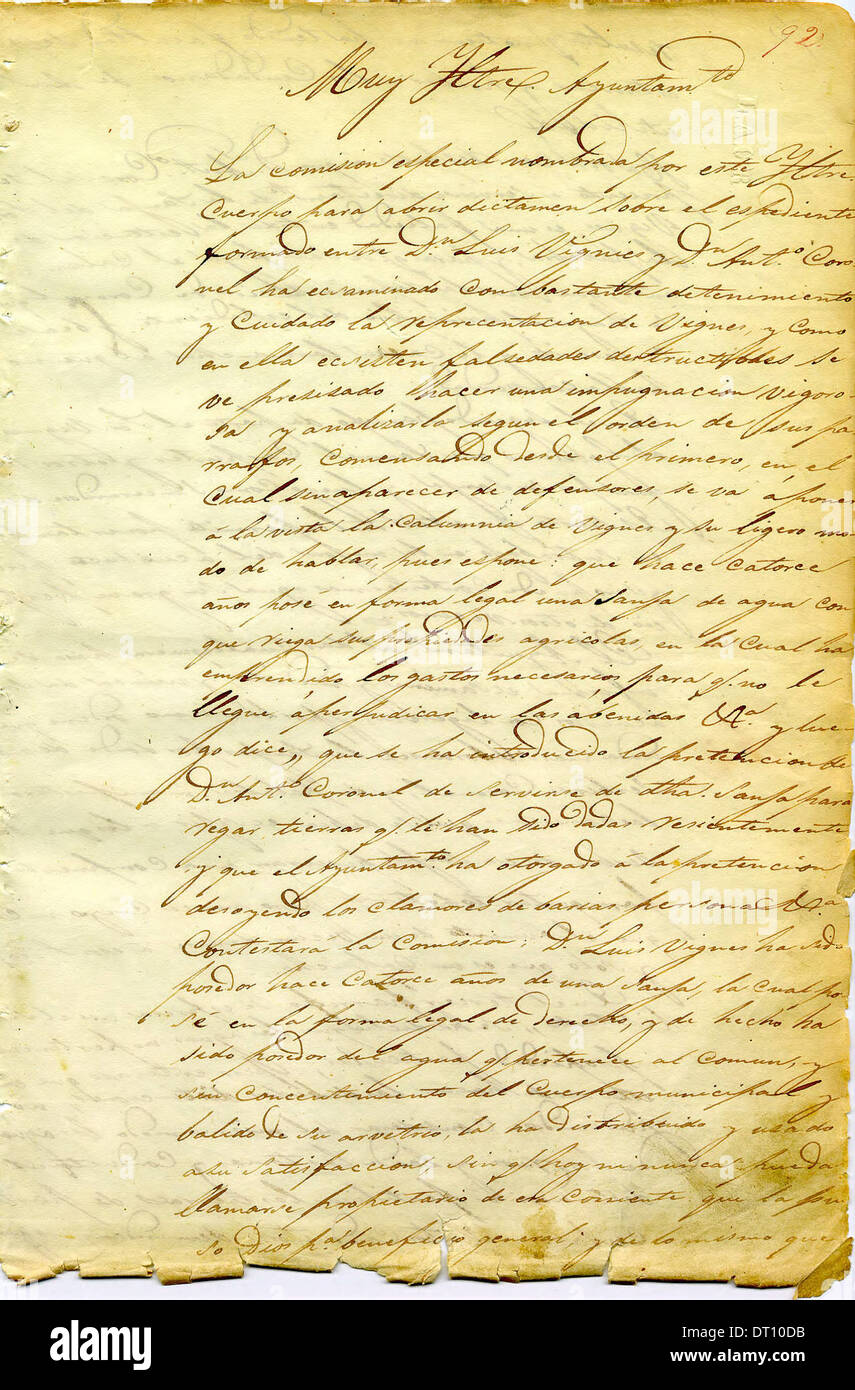 92.
Muy Yltre. Ayuntam.to
La comision especial nombrada por este Yltre.
Cuerpo para abrir dictamen sobre el espediente
formado entre D.n Luis Vignies y D.n Ant.o Coro-
nel ha ecsaminado con bastante detenimiento
y cuidado la representacion de Vignes, y como
en ella ecsisten falsedades destructibles se
ve presisado hacer una impugnacion vigoro-
sa y analizarla segun el orden de sus pa-
rrafos, comensando desde el primero, en el
cual sin aparecer de defensores, se va á poner
á la vista la calumnia de Vignes y su ligero mo-
do de hablar, pues espone: que hace catorce
años posé en forma legal una Sanja de agua con
que riega sus propiedades agricolas, en la cual ha
emprendido los gastos necesarios para q. no le
llegue á perjudicar en las abenidas &.a y lue-
go dice,, que se ha introducido la pretencion de
D.n Ant.o Coronel de servirse de dha. Sanja para
regar tierras q. le han sido dadas resientemente
y que el Ayuntam.to ha otorgado á la pretencion
desoyendo los clamores de barias personas &.a
Contestará la Comision: D.n Luis Vignes ha sido
posedor hace catorce años de una Sanja, la cual po-
sé en la forma legal de derecho, y de hecho ha
sido posedor del agua q. pertenece al comun, y
sin concentimiento del Cuerpo municipal y
balido de su arvitrio, la ha distribuido y usado
a su satisfaccion, sin q. hoy ni nunca pueda
llamarse propietario de esa corriente que la pu-
so Dios p.a beneficio general; y de lo mismo que
alamy
www.alamy.com
DT10DB